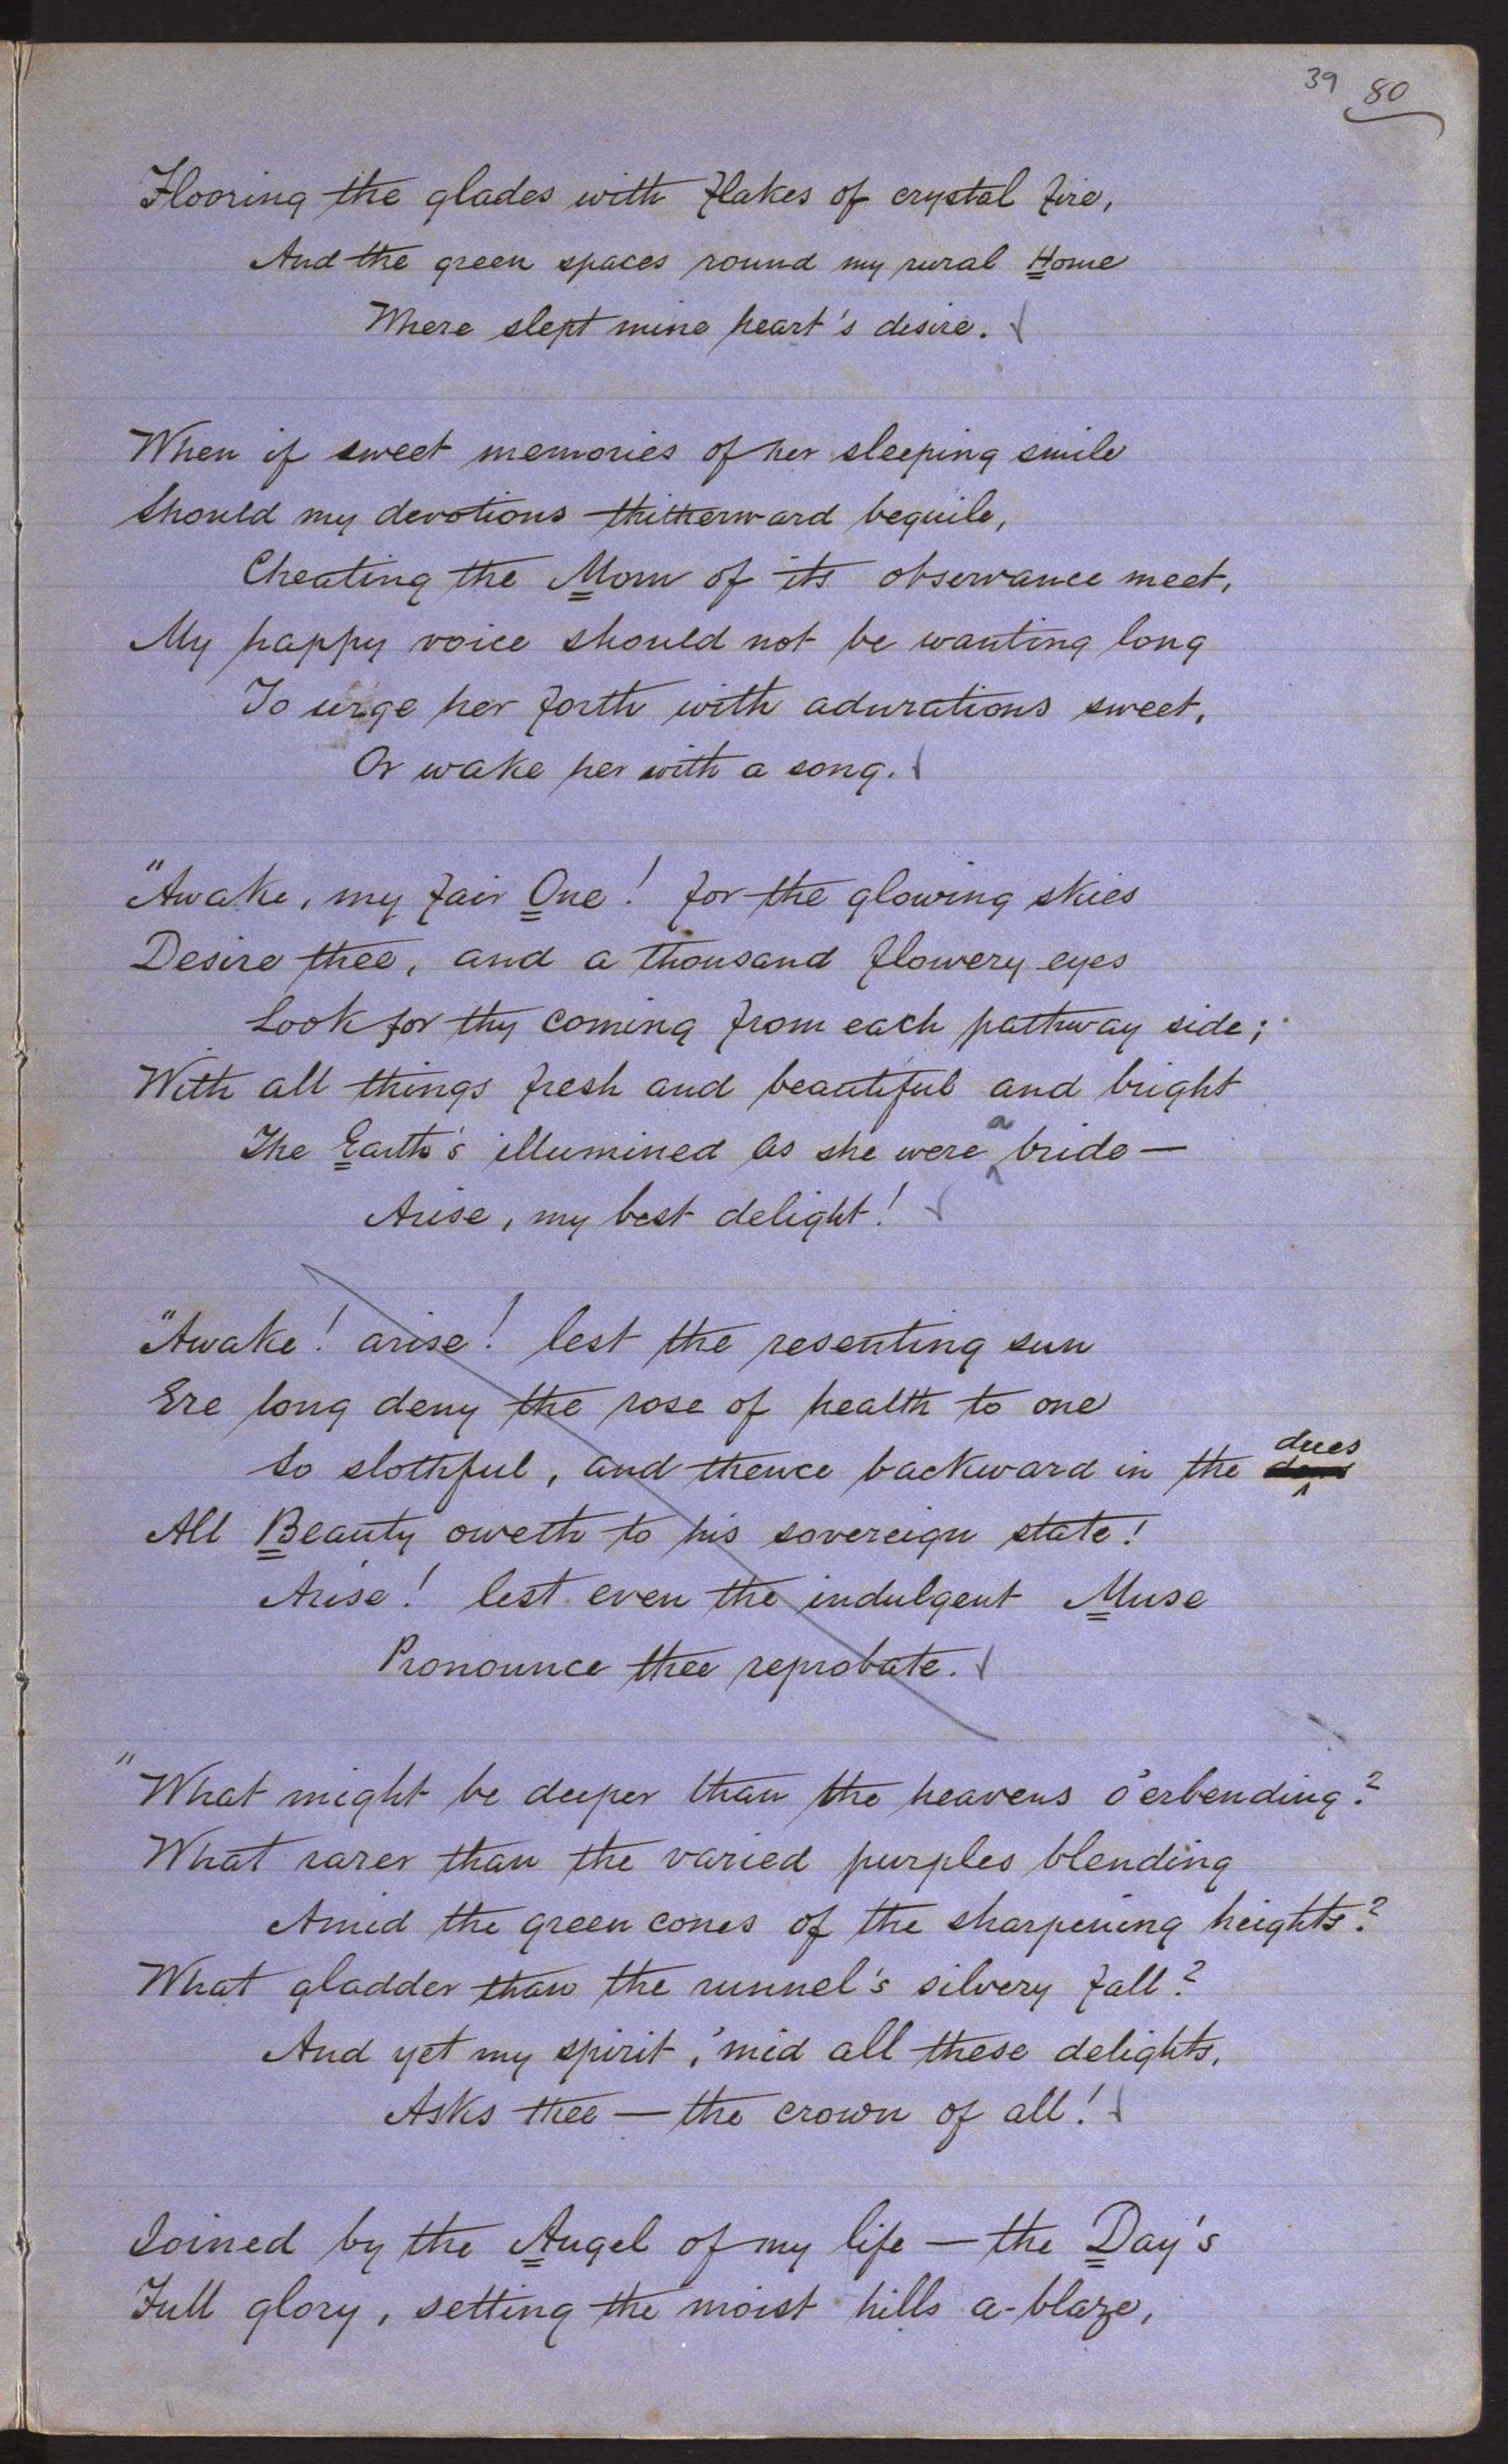 39 80
Flooring the glades with flakes of crystal fire,
And the green spaces round my rural Home
Where slept mine heart's desire.
When if sweet memories of her sleeping smile
Should my devotions thitherward beguile,
Cheating the Morn of its observance meet,
My happy voice should not be wanting long
To urge her forth with adurations sweet,
Or wake her with a song.
"Awake, my fair One! for the glowing skies
Desire thee, and a thousand flowery eyes
Look for thy coming from each pathway side;
With all things fresh and beautiful and bright
The Earth's illumined as she were a bride —
Arise, my best delight!
"Awake! arise! lest the resenting sun
Ere long deny the rose of health to one
So slothful, and thence backward in the dues
All Beauty oweth to his sovereign state!
Arise! lest even the indulgent Muse
Pronounce thee reprobate.
"What might be deeper than the heavens o'erbending?
What rarer than the varied purples blending
Amid the green cones of the sharpening heights?
What gladder than the runnel's silvery fall?
And yet my spirit, 'mid all these delights,
Asks thee — the crown of all!
Joined by the Angel of my life — the Day's
Full glory, setting the moist hills a-blaze,